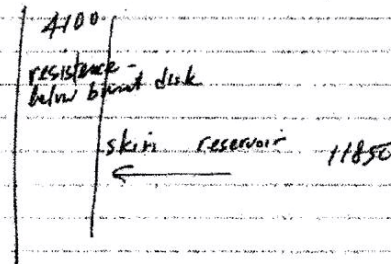 4100
resistance -
below burst disk
skin reservoir 11850